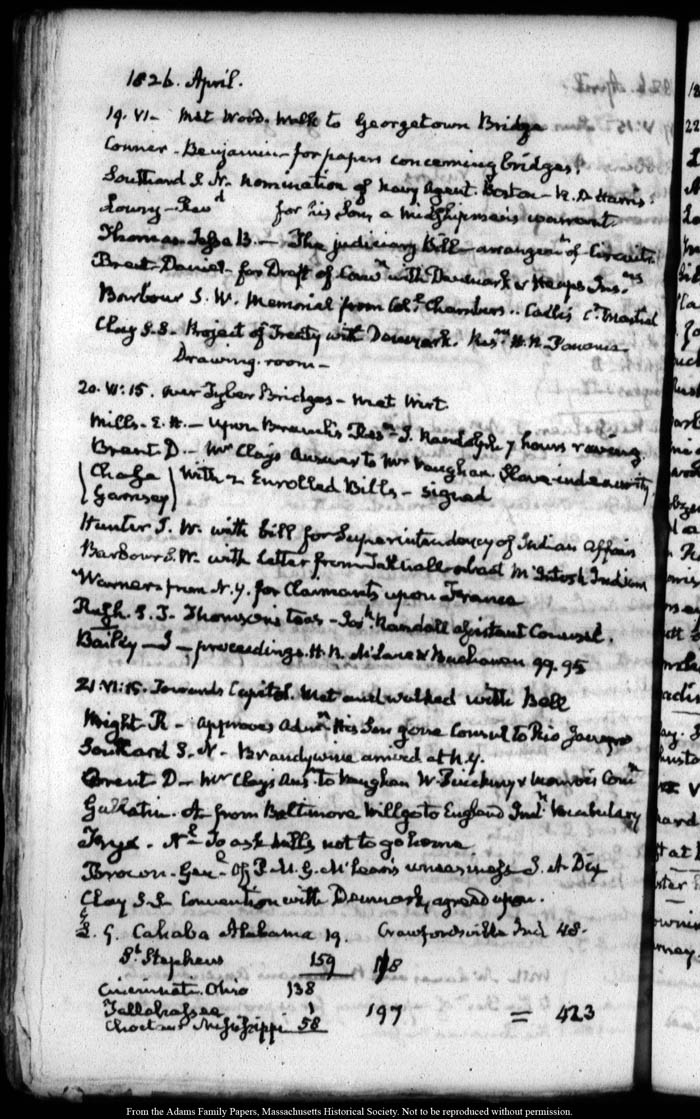 1826. April.
19. VI- Met Wood. Walk to Georgetown Bridge
Conner - Benjamin - for papers concerning bridges.
Southard S. N. Nomination of Navy Agent. Boston - R. D. Harris.
Lowry - Revd for his Son, a Midshipman's warrant
Thomas Jesse B. - The judiciary Bill - arrangemt of Circuits
Brent - Daniel - for Draft of Convn with Denmark &
Barbour S. W. Memorial from Coll Chambers - Ct Martial
Clay S.S. Project of Treaty with Denmark. H.R. Panama
Drawing-room -
20. VI:15. over Tyber Bridges - met Wirt.
Mills - E. H. - upon Branch's J. Randolph 7 hours raving
Brent D. - Mr Clay's Answer to Mr Vaughan. Slave-indemnity
Garnsey with 2 Enrolled Bills - signed
Hunter J. W. with bill for Superintendency of Indian Affairs
Barbour S.W. with letter from McIntosh Indian
Warner from N.Y. for Claimants upon France
Rush. S. T. Thomson's teas - Jos. Randall assistant Counsel.
Bailey - J - proceedings H.R. McLane & Buchanan 99. 95
21. VI:15. Towards Capitol. Met and walked with Bell
Wright. R - approves Admn His Son gone Consul to Rio Janeyro
Southard S. N - Brandywine arrived at N.Y.
Brent D - Mr Clay's Ans. to Vaughan W. Pinckney &
Gallatin. A. from Baltimore will go to England Indn Vocabulary
Frye. Nl To ask not to go home
Brown - Genl Of P.M.G. McLean's uneasiness J. A. Dix
Clay S.S. Convention with Denmark, agreed upon.
L. G. Cahaba Alabama 19. Crawfordsville Ind 48.
St Stephens 159 178
Cincinnati. Ohio 138
Tallahassee 1
Choctaw Mississippi 58 197 = 423
From the Adams Family Papers, Massachusetts Historical Society. Not to be reproduced without permission.